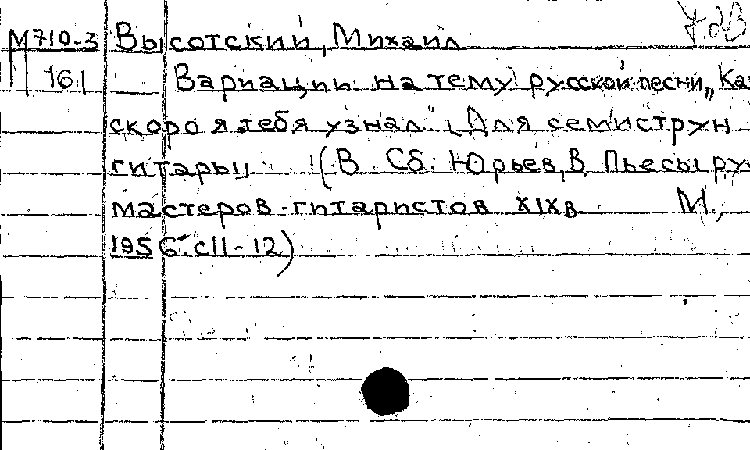 М710-3 Высотский, Михаил 7.23
161 Вариации на тему русской песни „Ка
скоро я тебя узнал" (Для семиструн
гитары) (В Сб. Юрьев, В. Пьесы ру
мастеров-гитаристов XIXв М.,
1956. с11-12)